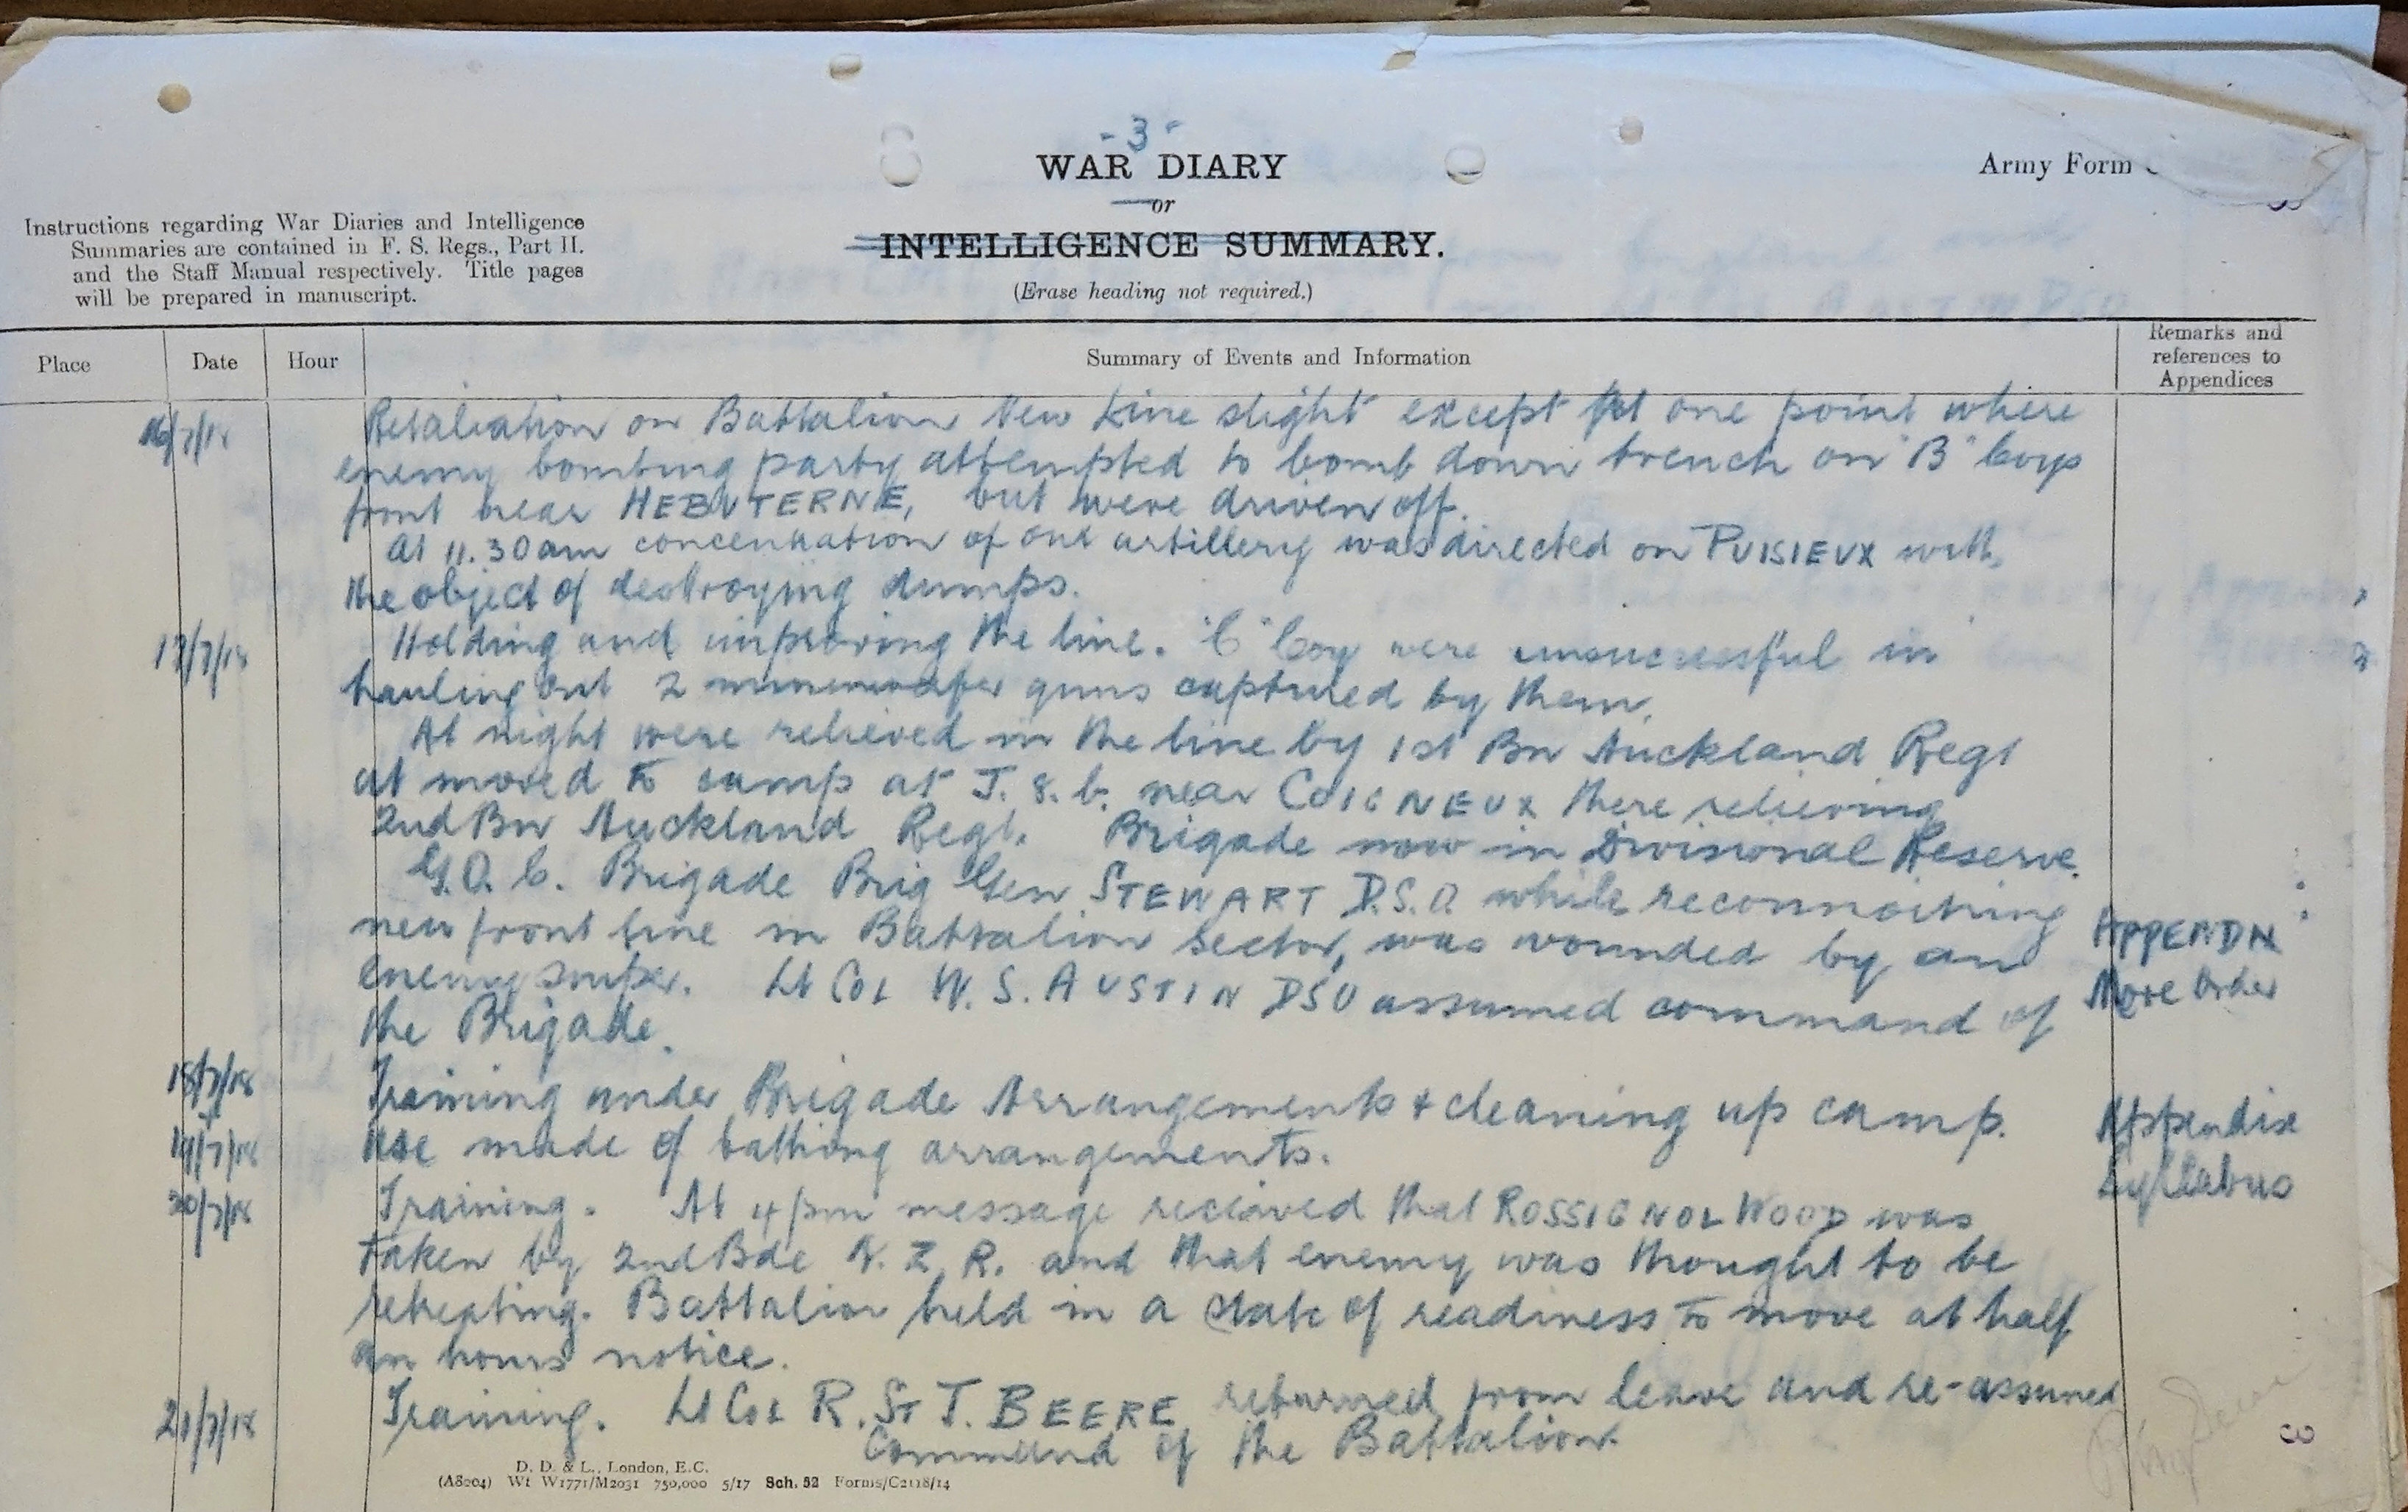 - 3 -
WAR DIARY
or
INTELLIGENCE SUMMARY.
(Erase heading not required.)
Army Form
Instructions regarding War Diaries and Intelligence
Summaries are contained in F. S. Regs., Part II.
and the Staff Manual respectively. Title pages
will be prepared in manuscript.
Place Date Hour Summary of Events and Information Remarks and references to Appendices
16/7/18 Retaliation on Battalion New Line slight except at one point where
enemy bombing party attempted to bomb down trench on "B" Coys
front near HEBUTERNE, but were driven off.
At 11.30am concentration of our artillery was directed on PUISIEUX with
the object of destroying dumps.
17/7/18 Holding and improving the line. "C" Coy were unsuccessful in
hauling out 2 minenwerfer guns captured by them.
At night were relieved in the line by 1st Bn Auckland Regt
at moved to camp at J. 8. b. near COIGNEUX there relieving
2nd Bn Auckland Regt. Brigade now in Divisional Reserve.
G.O.C. Brigade Brig Gen STEWART D.S.O. while reconnoitring
new front line in Battalion Sector, was wounded by an APPENDIX
enemy sniper. Lt Col W. S. AUSTIN DSO assumed command of Move Order
the Brigade.
18/7/18 Training under Brigade Arrangements & cleaning up camp. Appendix
+
19/7/18 Use made of bathing arrangements. Syllabus
20/7/18 Training. At 4 pm message received that ROSSIGNOL WOOD was
taken by 2nd Bde N. Z. R. and that enemy was thought to be
retreating. Battalion held in a state of readiness to move at half
an hours notice.
21/7/18 Training. Lt Col R. ST J. BEERE returned from leave and re-assumed
Command of the Battalion.
D. D. & L., London, E.C.
(A8204) Wt W1771/M2031 750,000 5/17 Sch. 52 Forms/C2118/14
3